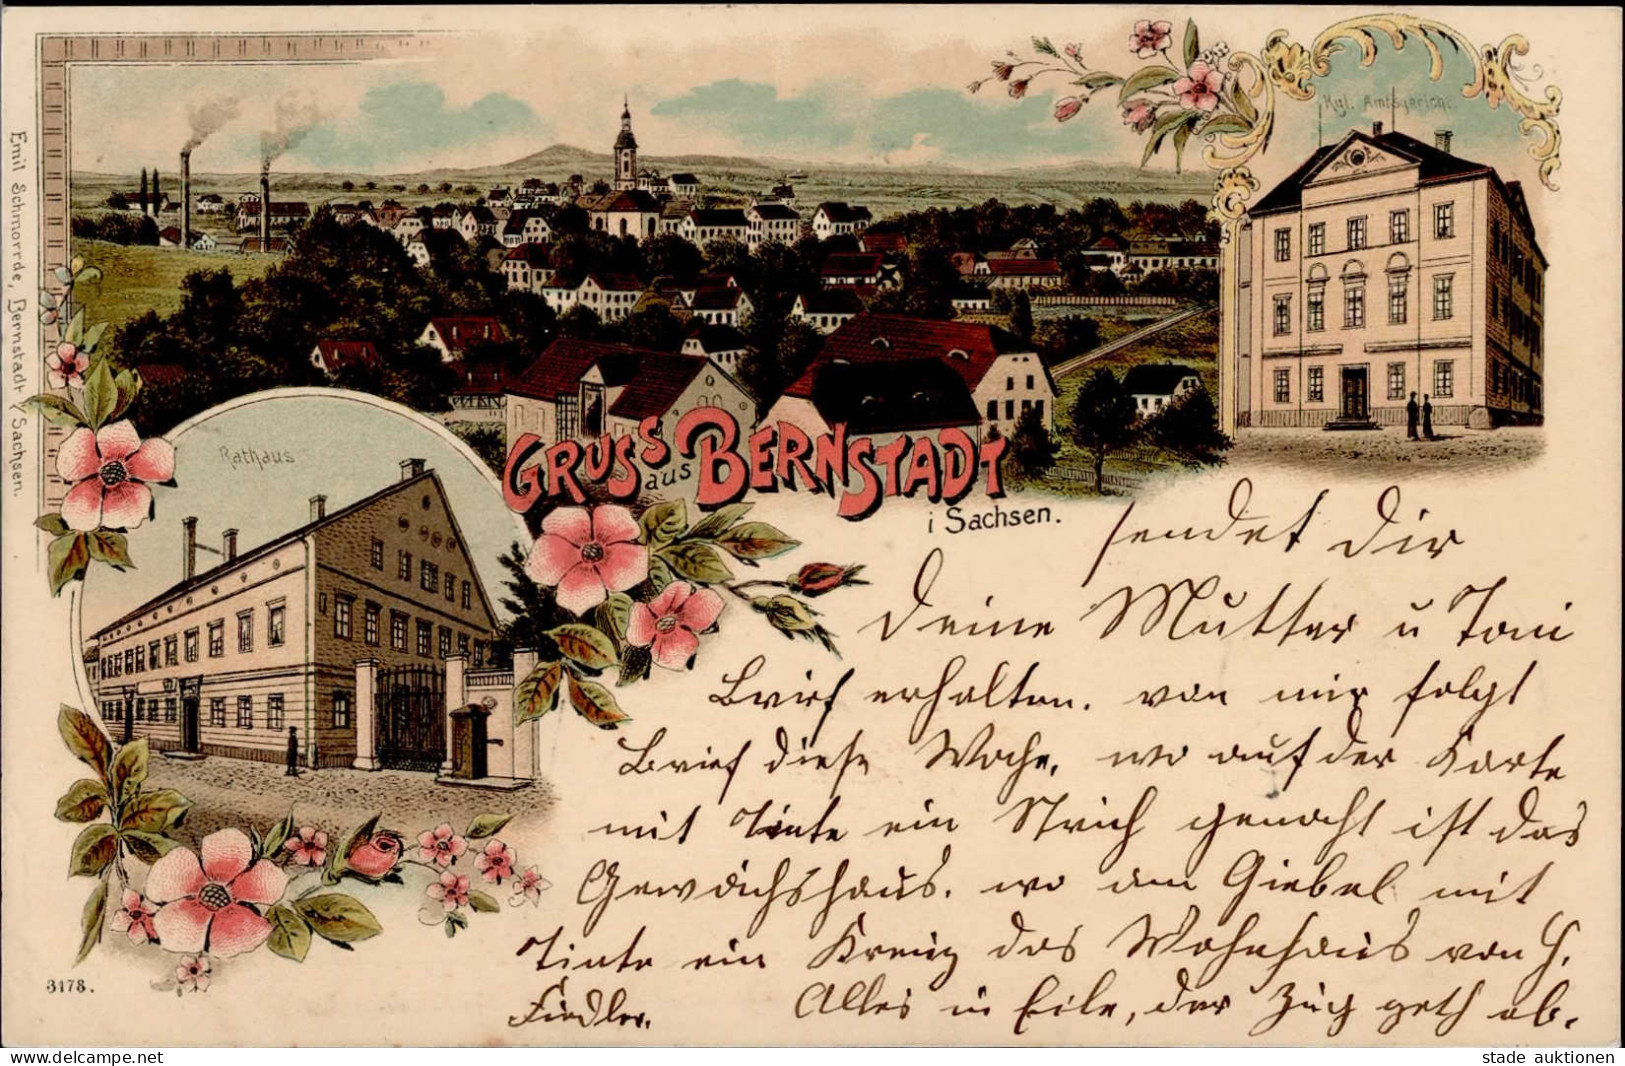 Kgl. Amtsgericht.
Emil Schmorrde, Bernstadt i/Sachsen.
Rathaus
GRUSS aus BERNSTADT
i Sachsen.
sendet Dir
Deine Mutter u Toni
Brief erhalten. von mir folgt
Brief diese Woche, wo auf der Karte
mit Tinte ein Strich gemacht ist das
Gewächshaus. wo am Giebel mit
Tinte ein Kreuz das Wohnhaus von H.
Fiedler. Alles in Eile, der Zug geth ab.
3178.
delcampe.net
stade auktionen